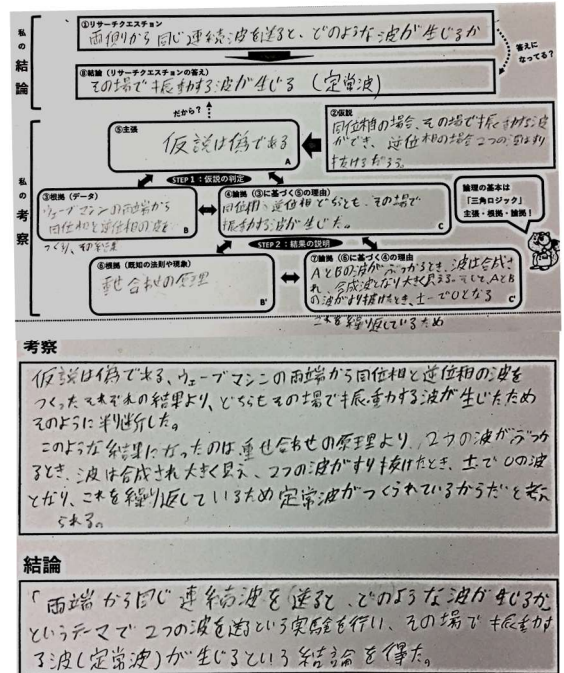 私の結論
①リサーチクエスチョン
両側から同じ連続波を送ると、どのような波が生じるか
答えになってる?
⑧結論(リサーチクエスチョンの答え)
その場で振動する波が生じる(定常波)
だから?
私の考察
⑤主張
仮説は偽である
A
②仮説
同位相の場合、その場で振動する波
ができ、逆位相の場合2つの波はすり
抜けるだろう
STEP1:仮説の判定
③根拠(データ)
ウェーブマシンの両端から
同位相と逆位相の波を
つくり、その結果
B
④論拠(③に基づく⑤の理由)
同位相、逆位相どちらも、その場で
振動する波が生じた。
C
論理の基本は
「三角ロジック」
主張・根拠・論拠!
STEP2:結果の説明
⑥根拠(既知の法則や現象)
重ね合わせの原理
B'
⑦論拠(⑥に基づく④の理由)
AとBの波がぶつかるとき、波は合成さ
れ、合成波となり大きく見える。そして、AとB
の波がすり抜けたとき、±で0となる
C'
これを繰り返しているため
考察
仮説は偽である、ウェーブマシンの両端から同位相と逆位相の波を
つくったそれぞれの結果より、どちらもその場で振動する波が生じたため
そのように判断した。
このような結果になったのは重ね合わせの原理より、2つの波がぶつか
るとき、波は合成され大きく見え、2つの波がすり抜けたとき、±で0の波
となり、これを繰り返しているため定常波がつくられているからだと考え
られる。
結論
「両端から同じ連続波を送ると、どのような波が生じるか
というテーマで2つの波を送るという実験を行い、その場で振動す
る波(定常波)が生じるという結論を得た。